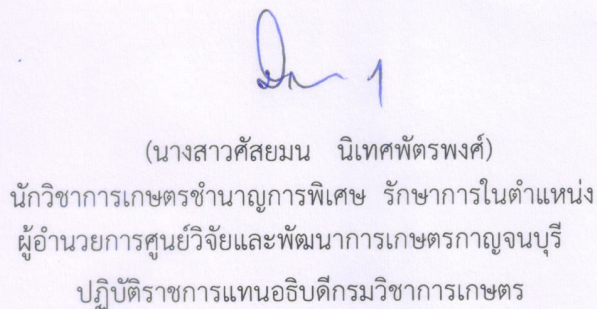 (นางสาวศัสยมน นิเทศพัตรพงศ์)
นักวิชาการเกษตรชำนาญการพิเศษ รักษาการในตำแหน่ง
ผู้อำนวยการศูนย์วิจัยและพัฒนาการเกษตรกาญจนบุรี
ปฏิบัติราชการแทนอธิบดีกรมวิชาการเกษตร